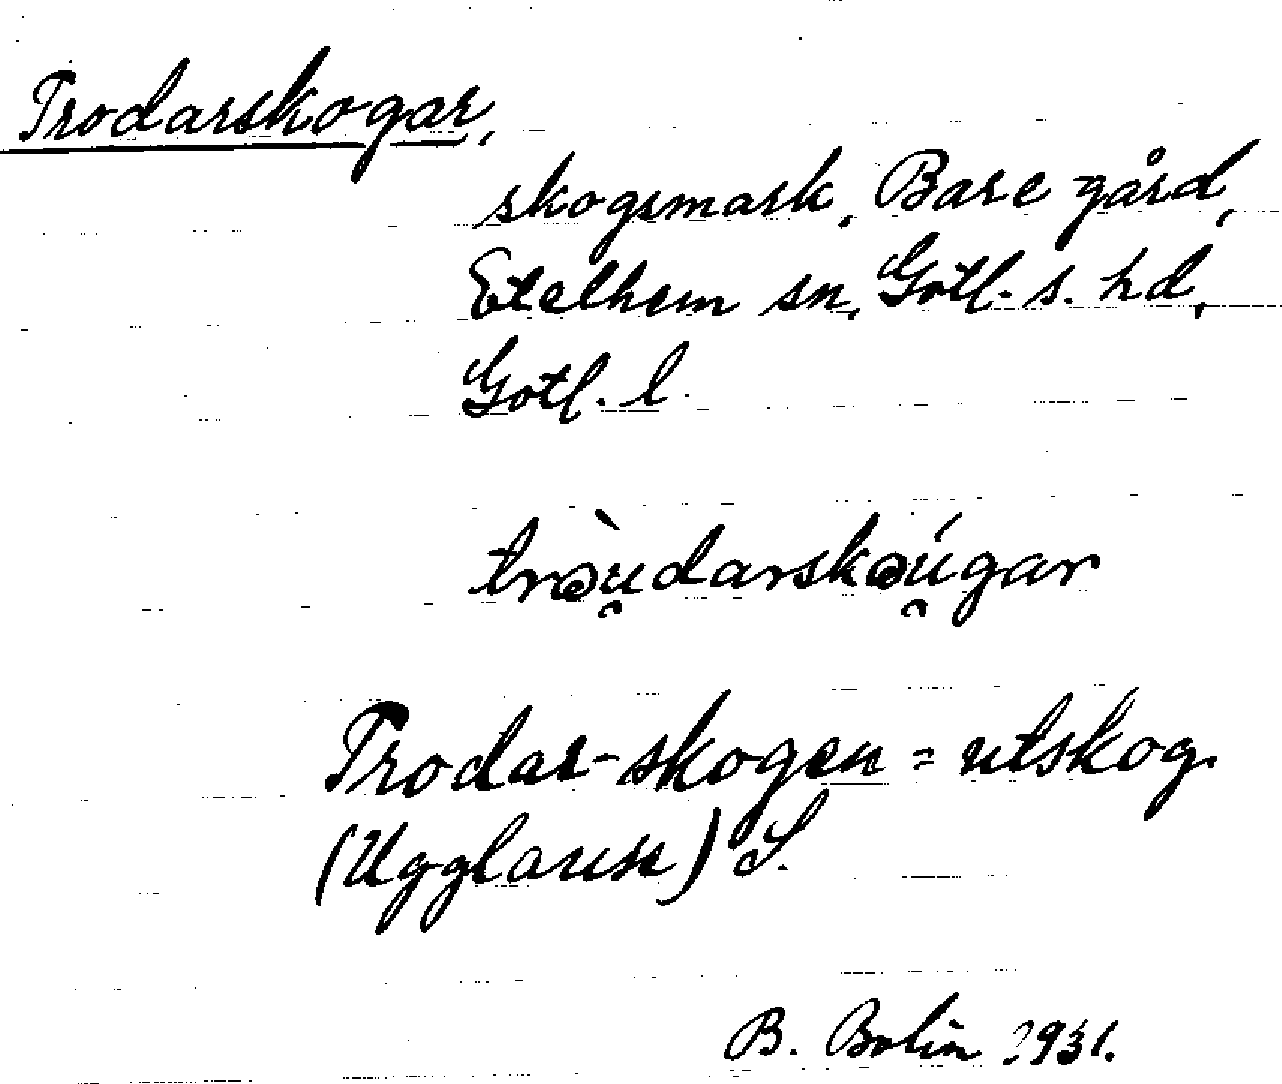 Trodarskogar,
skogsmark, Bare gård,
Etelhem sn, Gotl. s. hd,
Gotl. l.
trə̀u̯darskəú̯gar
Trodar-skogen = utskog.
(Ugglause) S.
B. Bolin 1931.